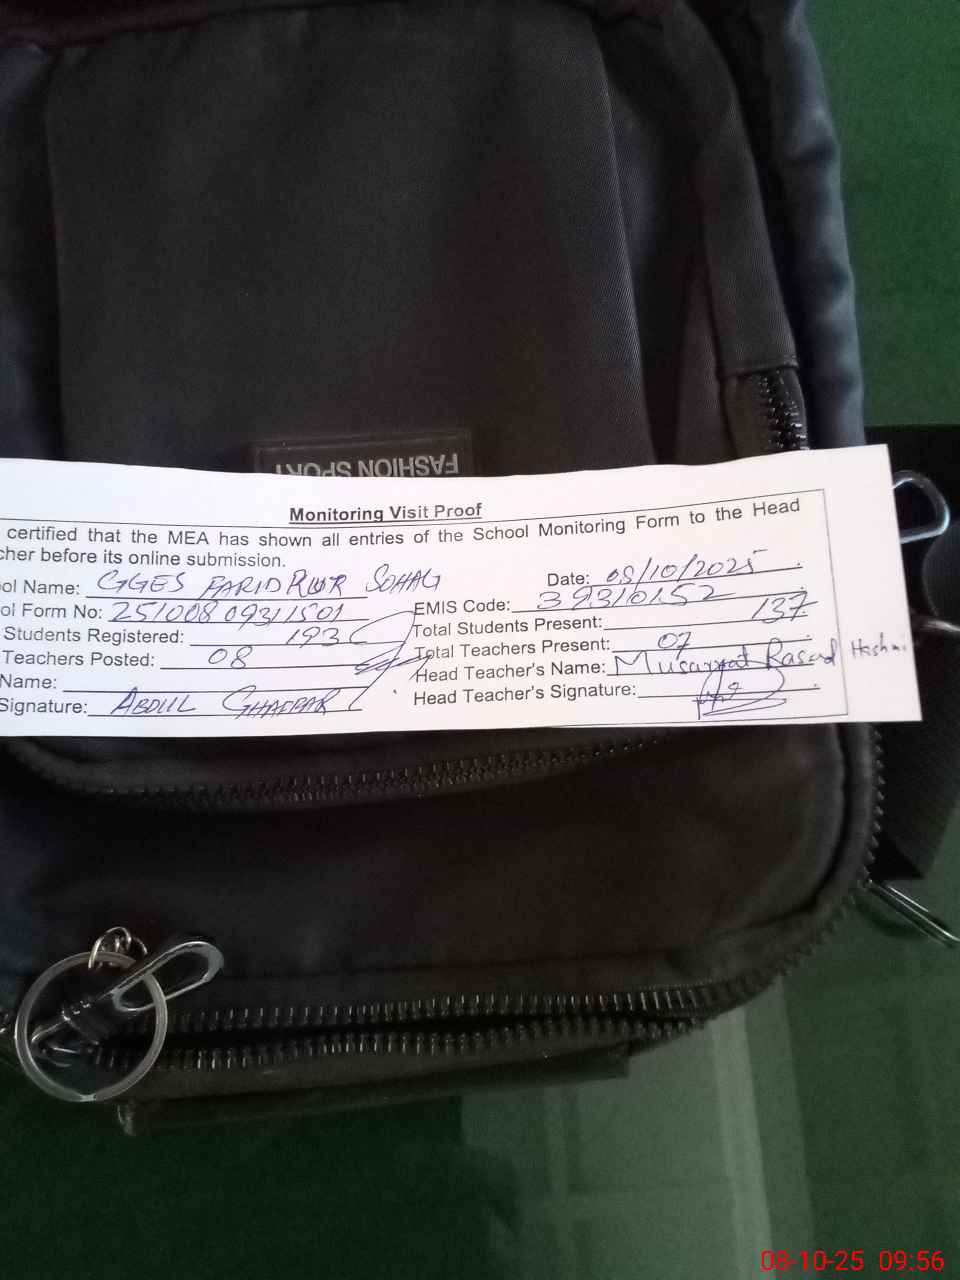 FASHION SPORT
Monitoring Visit Proof
certified that the MEA has shown all entries of the School Monitoring Form to the Head
cher before its online submission.
ol Name: GGES FARID PUR SOHAG Date: 08/10/2025
ol Form No: 25100809311501 EMIS Code: 39310152
Students Registered: 193 Total Students Present: 137
Teachers Posted: 08 Total Teachers Present: 07
Name: Head Teacher's Name: Musarrat Rasool Hashmi
Signature: ABDUL GHAFFAR Head Teacher's Signature:
08-10-25 09:56